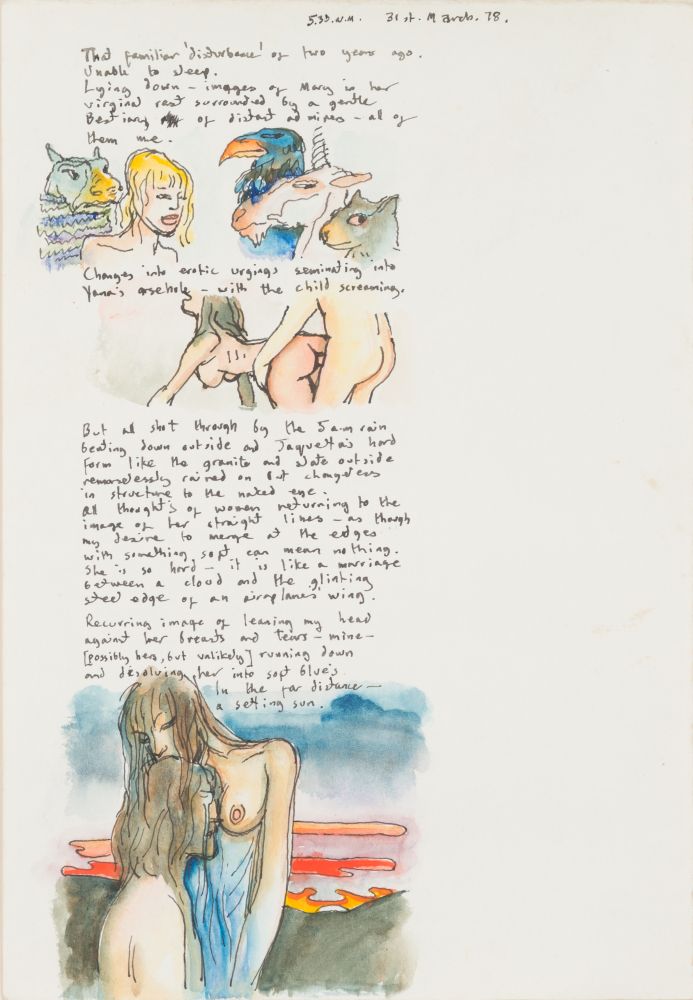 5.33. A.M. 31st. March. 78.
That familiar 'disturbance' of two years ago.
Unable to sleep.
Lying down – images of Mary in her
virginal rest surrounded by a gentle
Bestiary of distant admirers – all of
them me.
Changes into erotic urgings seminating into
Yana's arsehole – with the child screaming.
But all shot through by the 5 a.m rain
beating down outside and Jaquetta's hard
form like the granite and slate outside
remorselessly rained on but changeless
in structure to the naked eye.
All thoughts of women returning to the
image of her straight lines – as though
my desire to merge at the edges
with something soft can mean nothing.
She is so hard – it is like a marriage
between a cloud and the glinting
steel edge of an airoplanes' wing.
Recurring image of leaning my head
against her breasts and tears – mine –
[possibly hers, but unlikely] running down
and disolving her into soft blue's.
In the far distance –
a setting sun.